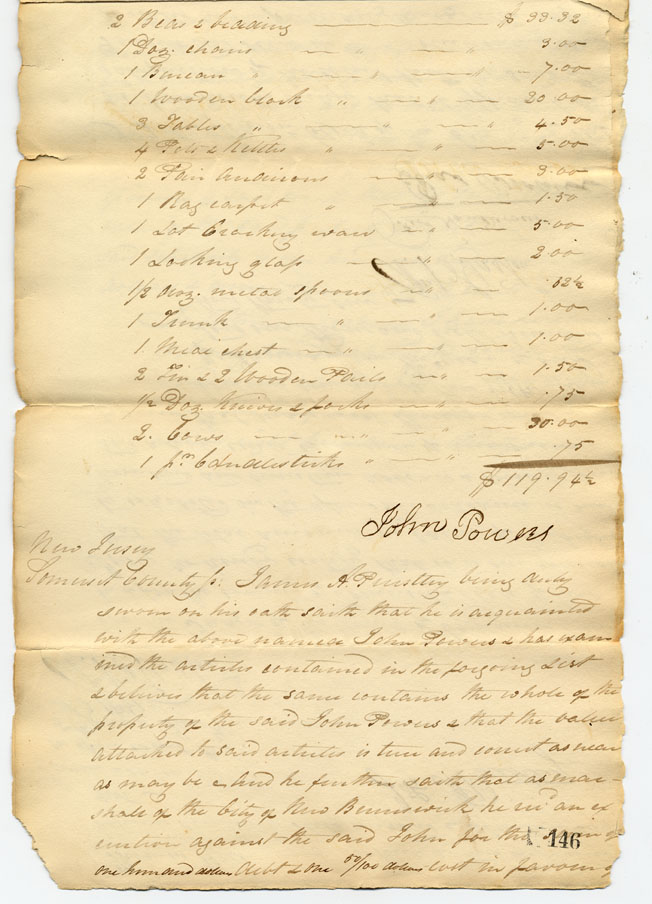 2 Beds & bedding — — $ 33.32
1 Doz. chairs — " — " — 3.00
1 Bureau " — " — " — 7.00
1 Wooden clock " — " — 20.00
3 Tables " — " — " 4.50
4 Pots & Kettles " — " — 5.00
2 Pair Andirons — " — 3.00
1 Rag carpet " — " — 1.50
1 Lot Crockery ware — " — 5.00
1 Looking glass — " — 2.00
1/2 doz. metal spoons " — " .02½
1 Trunk — " — " — 1.00
1 Meal chest — " — " — 1.00
2 Tin & 2 Wooden Pails — " — 1.50
1/2 Doz Knives & forks — " — .75
2. Cows — " — " — 30.00
1 pr. Candlesticks " — " — .75
$ 119.94½
John Powers
New Jersey
Somerset County ss: James A. Priestley being duly
sworn on his oath saith that he is acquainted
with the above named John Powers & has exam
ined the articles contained in the forgoing List
& believes that the same contains the whole of the
property of the said John Powers & that the value
attached to said articles is true and correct as near
as may be & And he further saith that as mar-
shale of the City of New Brunswick he recd an ex
ecution against the said John for the sum of
one hund and dollars debt & one 50/100 dollars cost in favour of
146